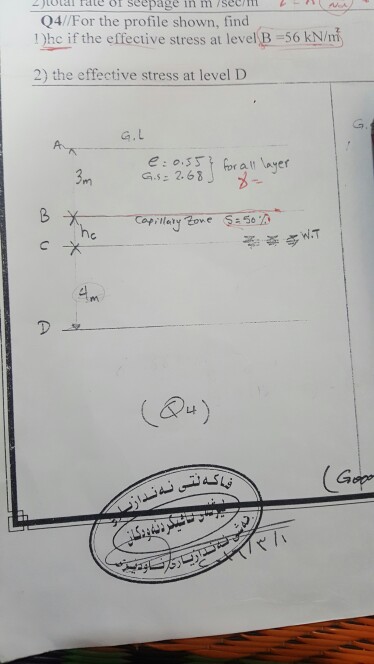 2)total rate of seepage in m³/sec/m
Q4//For the profile shown, find
1)hc if the effective stress at level B =56 kN/m²
2) the effective stress at level D
A G.L
3m
e = 0.55
G.s = 2.68
for all layer
γ =
B
hc
Capillary Zone S = 50 %
C
W.T
4m
D
(Q4)
G.
(Goo
فاكەڵتی ئەندازیاری